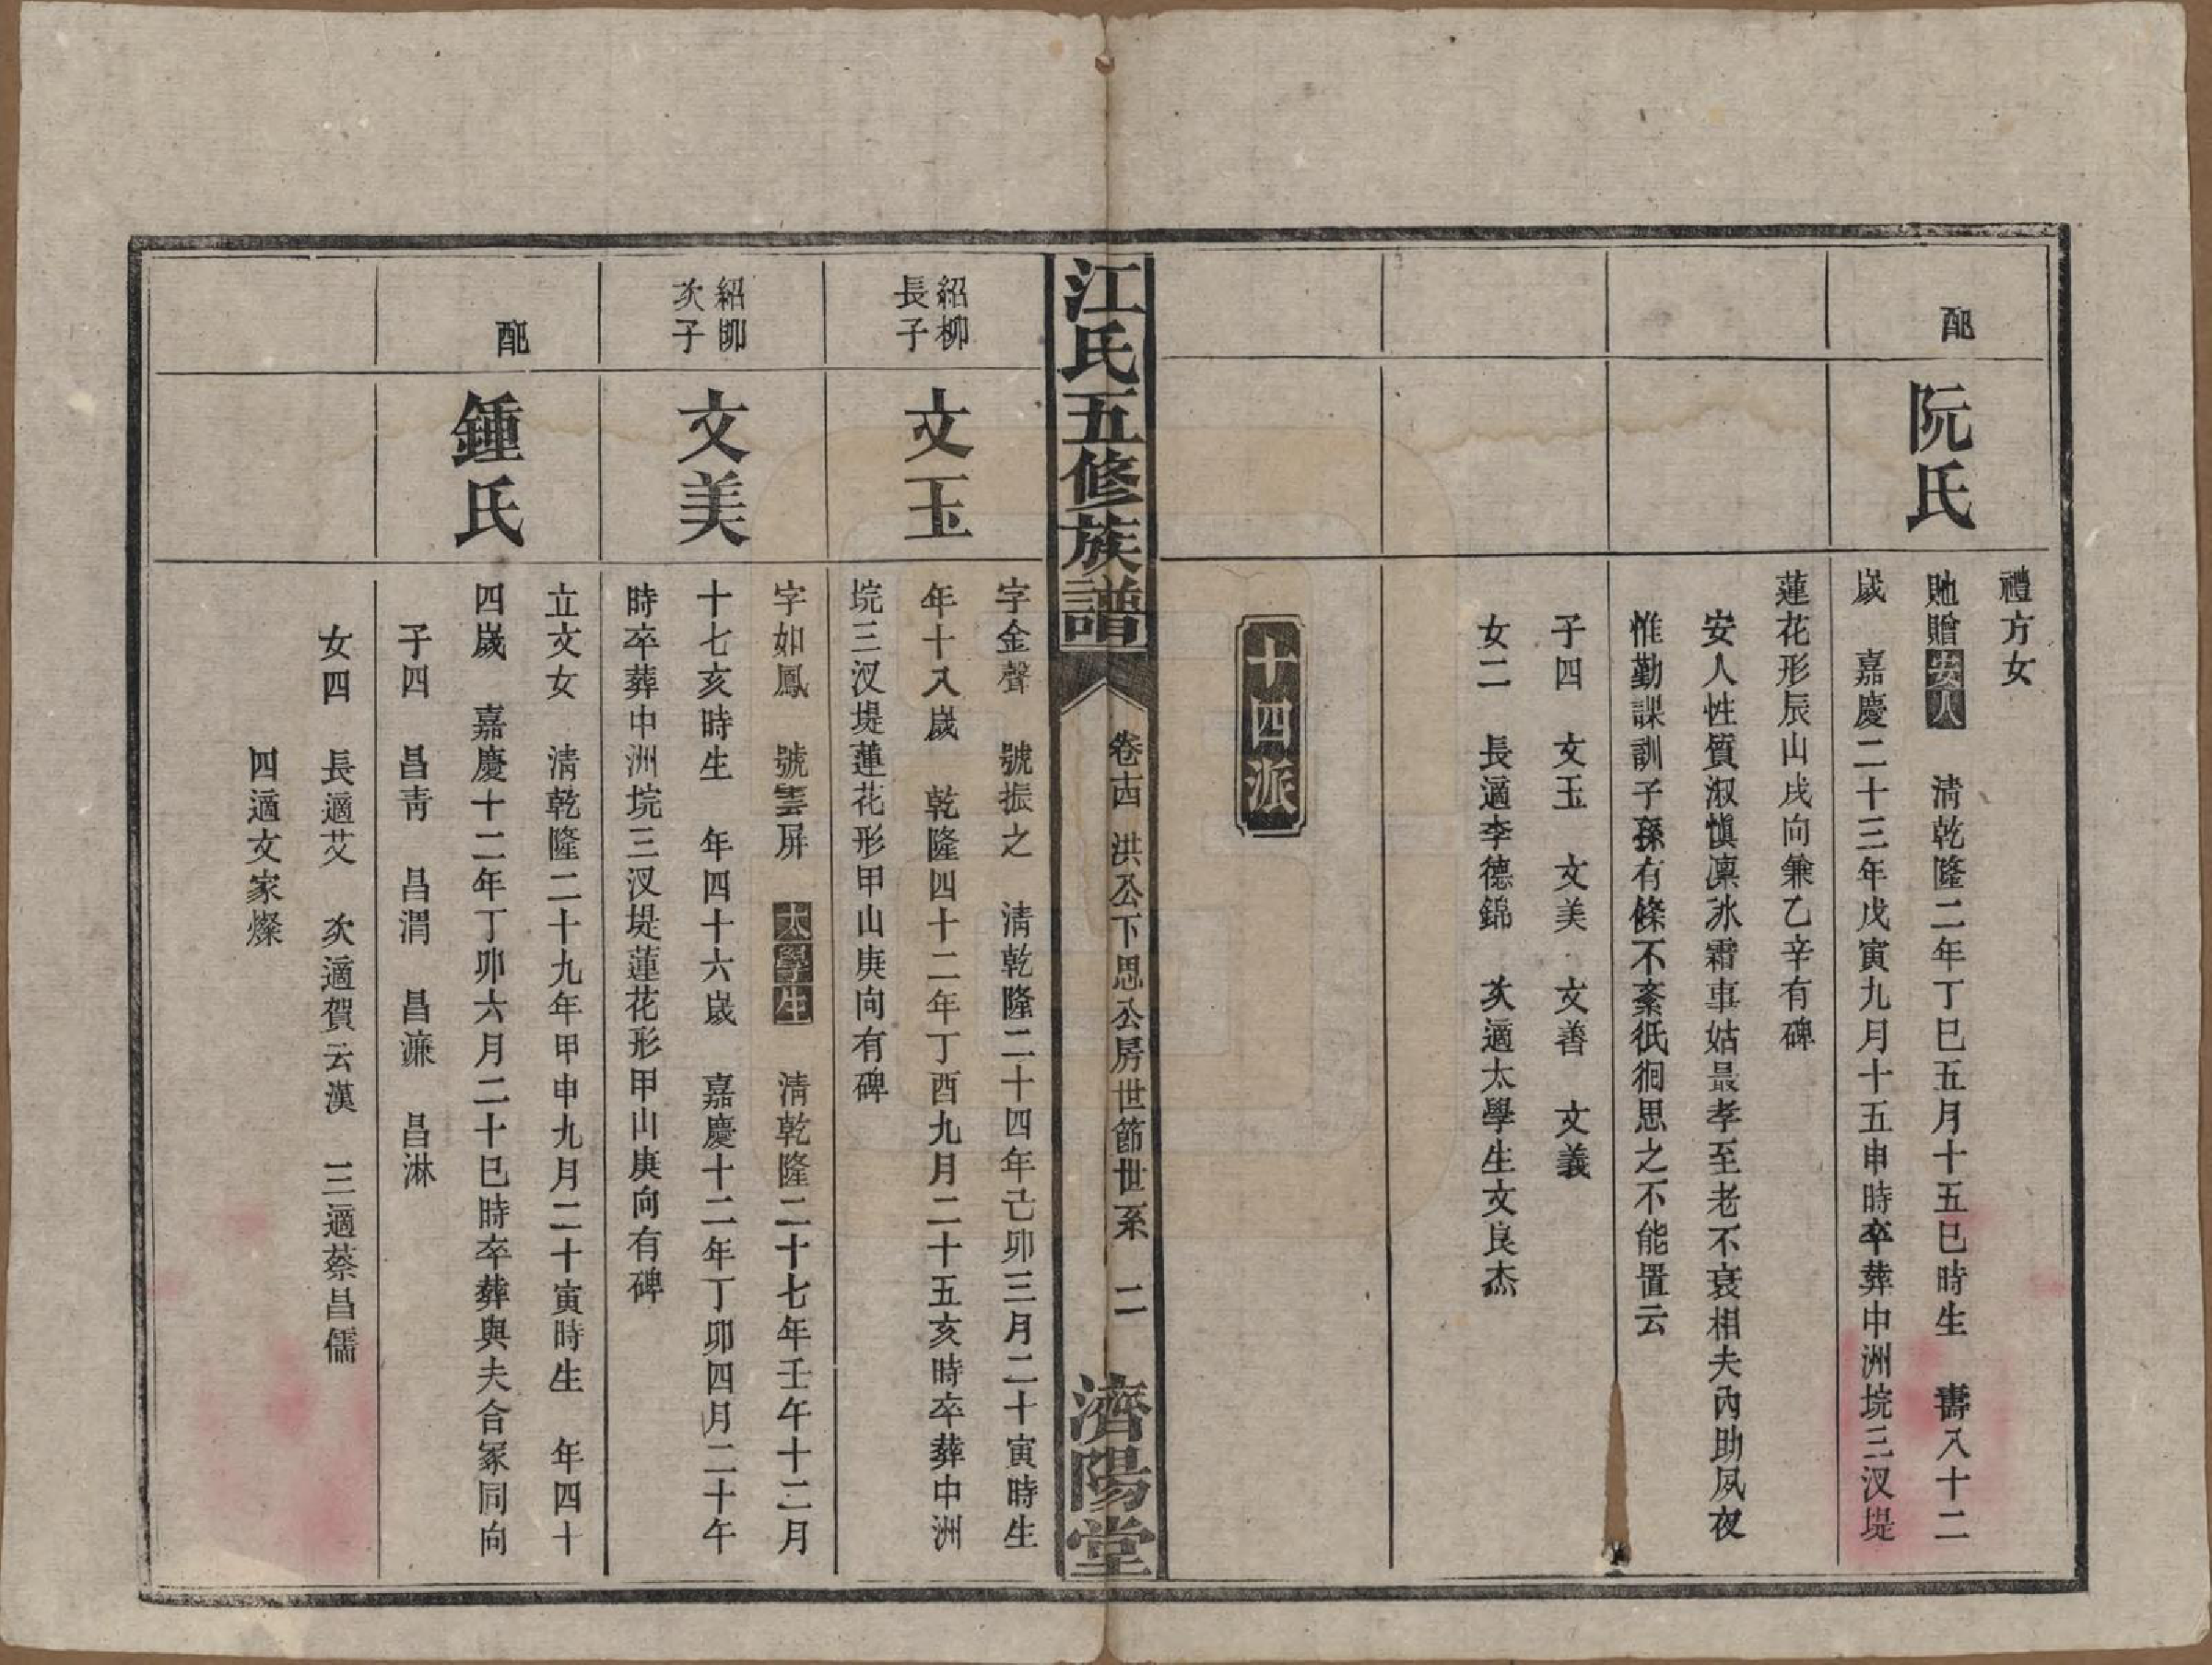 配
阮氏
禮方女
貤贈安人　清乾隆二年丁巳五月十五巳時生　壽八十二
歲　嘉慶二十三年戊寅九月十五申時卒葬中洲垸三汊堤
蓮花形辰山戌向兼乙辛有碑
安人性質淑慎凜氷霜事姑最孝至老不衰相夫內助夙夜
惟勤課訓子孫有條不紊徘徊思之不能置云
子四　文玉　文美　文善　文義
女二　長適李德錦　次適太學生文良杰
十四派
江氏五修族譜
卷十四　洪公下思公房世節世系　二
濟陽堂
紹柳
長子
文玉
字金聲　號振之　清乾隆二十四年己卯三月二十寅時生
年十八歲　乾隆四十二年丁酉九月二十五亥時卒葬中洲
垸三汊堤蓮花形甲山庚向有碑
紹卿
次子
文美
字如鳳　號雲屏　太學生　清乾隆二十七年壬午十二月
十七亥時生　年四十六歲　嘉慶十二年丁卯四月二十午
時卒葬中洲垸三汊堤蓮花形甲山庚向有碑
配
鍾氏
立文女　清乾隆二十九年甲申九月二十寅時生　年四十
四歲　嘉慶十二年丁卯六月二十巳時卒葬與夫合冢同向
子四　昌青　昌渭　昌濂　昌淋
女四　長適艾　次適賀云漢　三適蔡昌儒
四適文家燦